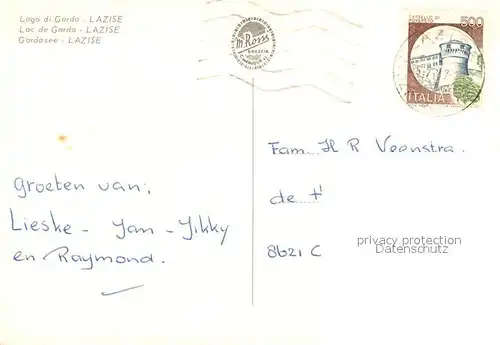 Lago di Garda - LAZISE
Lac de Garda - LAZISE
Gardasee - LAZISE
500
ITALIA
Groeten van:
Lieske - Jan - Jikky
en Raymond.
Fam. H R Veenstra.
de
8621 C
privacy protection
Datenschutz